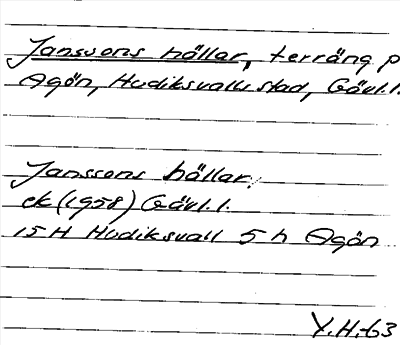 Janssons hällar, terräng p
Agön, Hudiksvalls stad, Gävl.l.
Janssons hällar.
ek (1958) Gävl.l.
15H Hudiksvall 5 h Agön
Y.H.-63